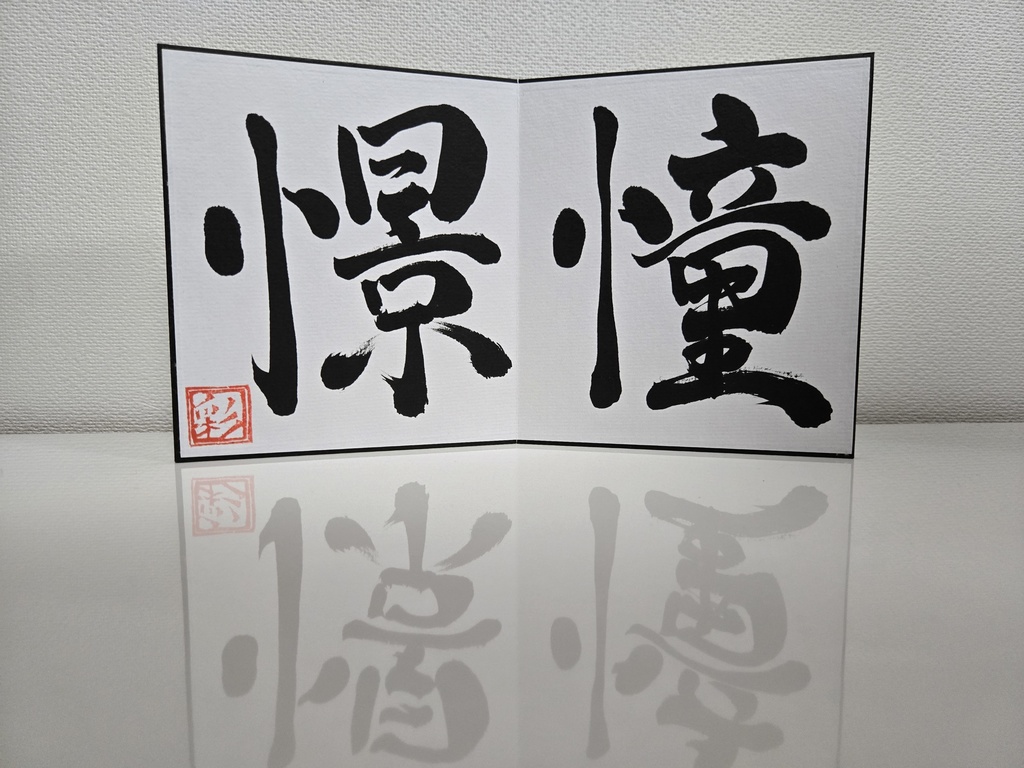 憧憬
彩